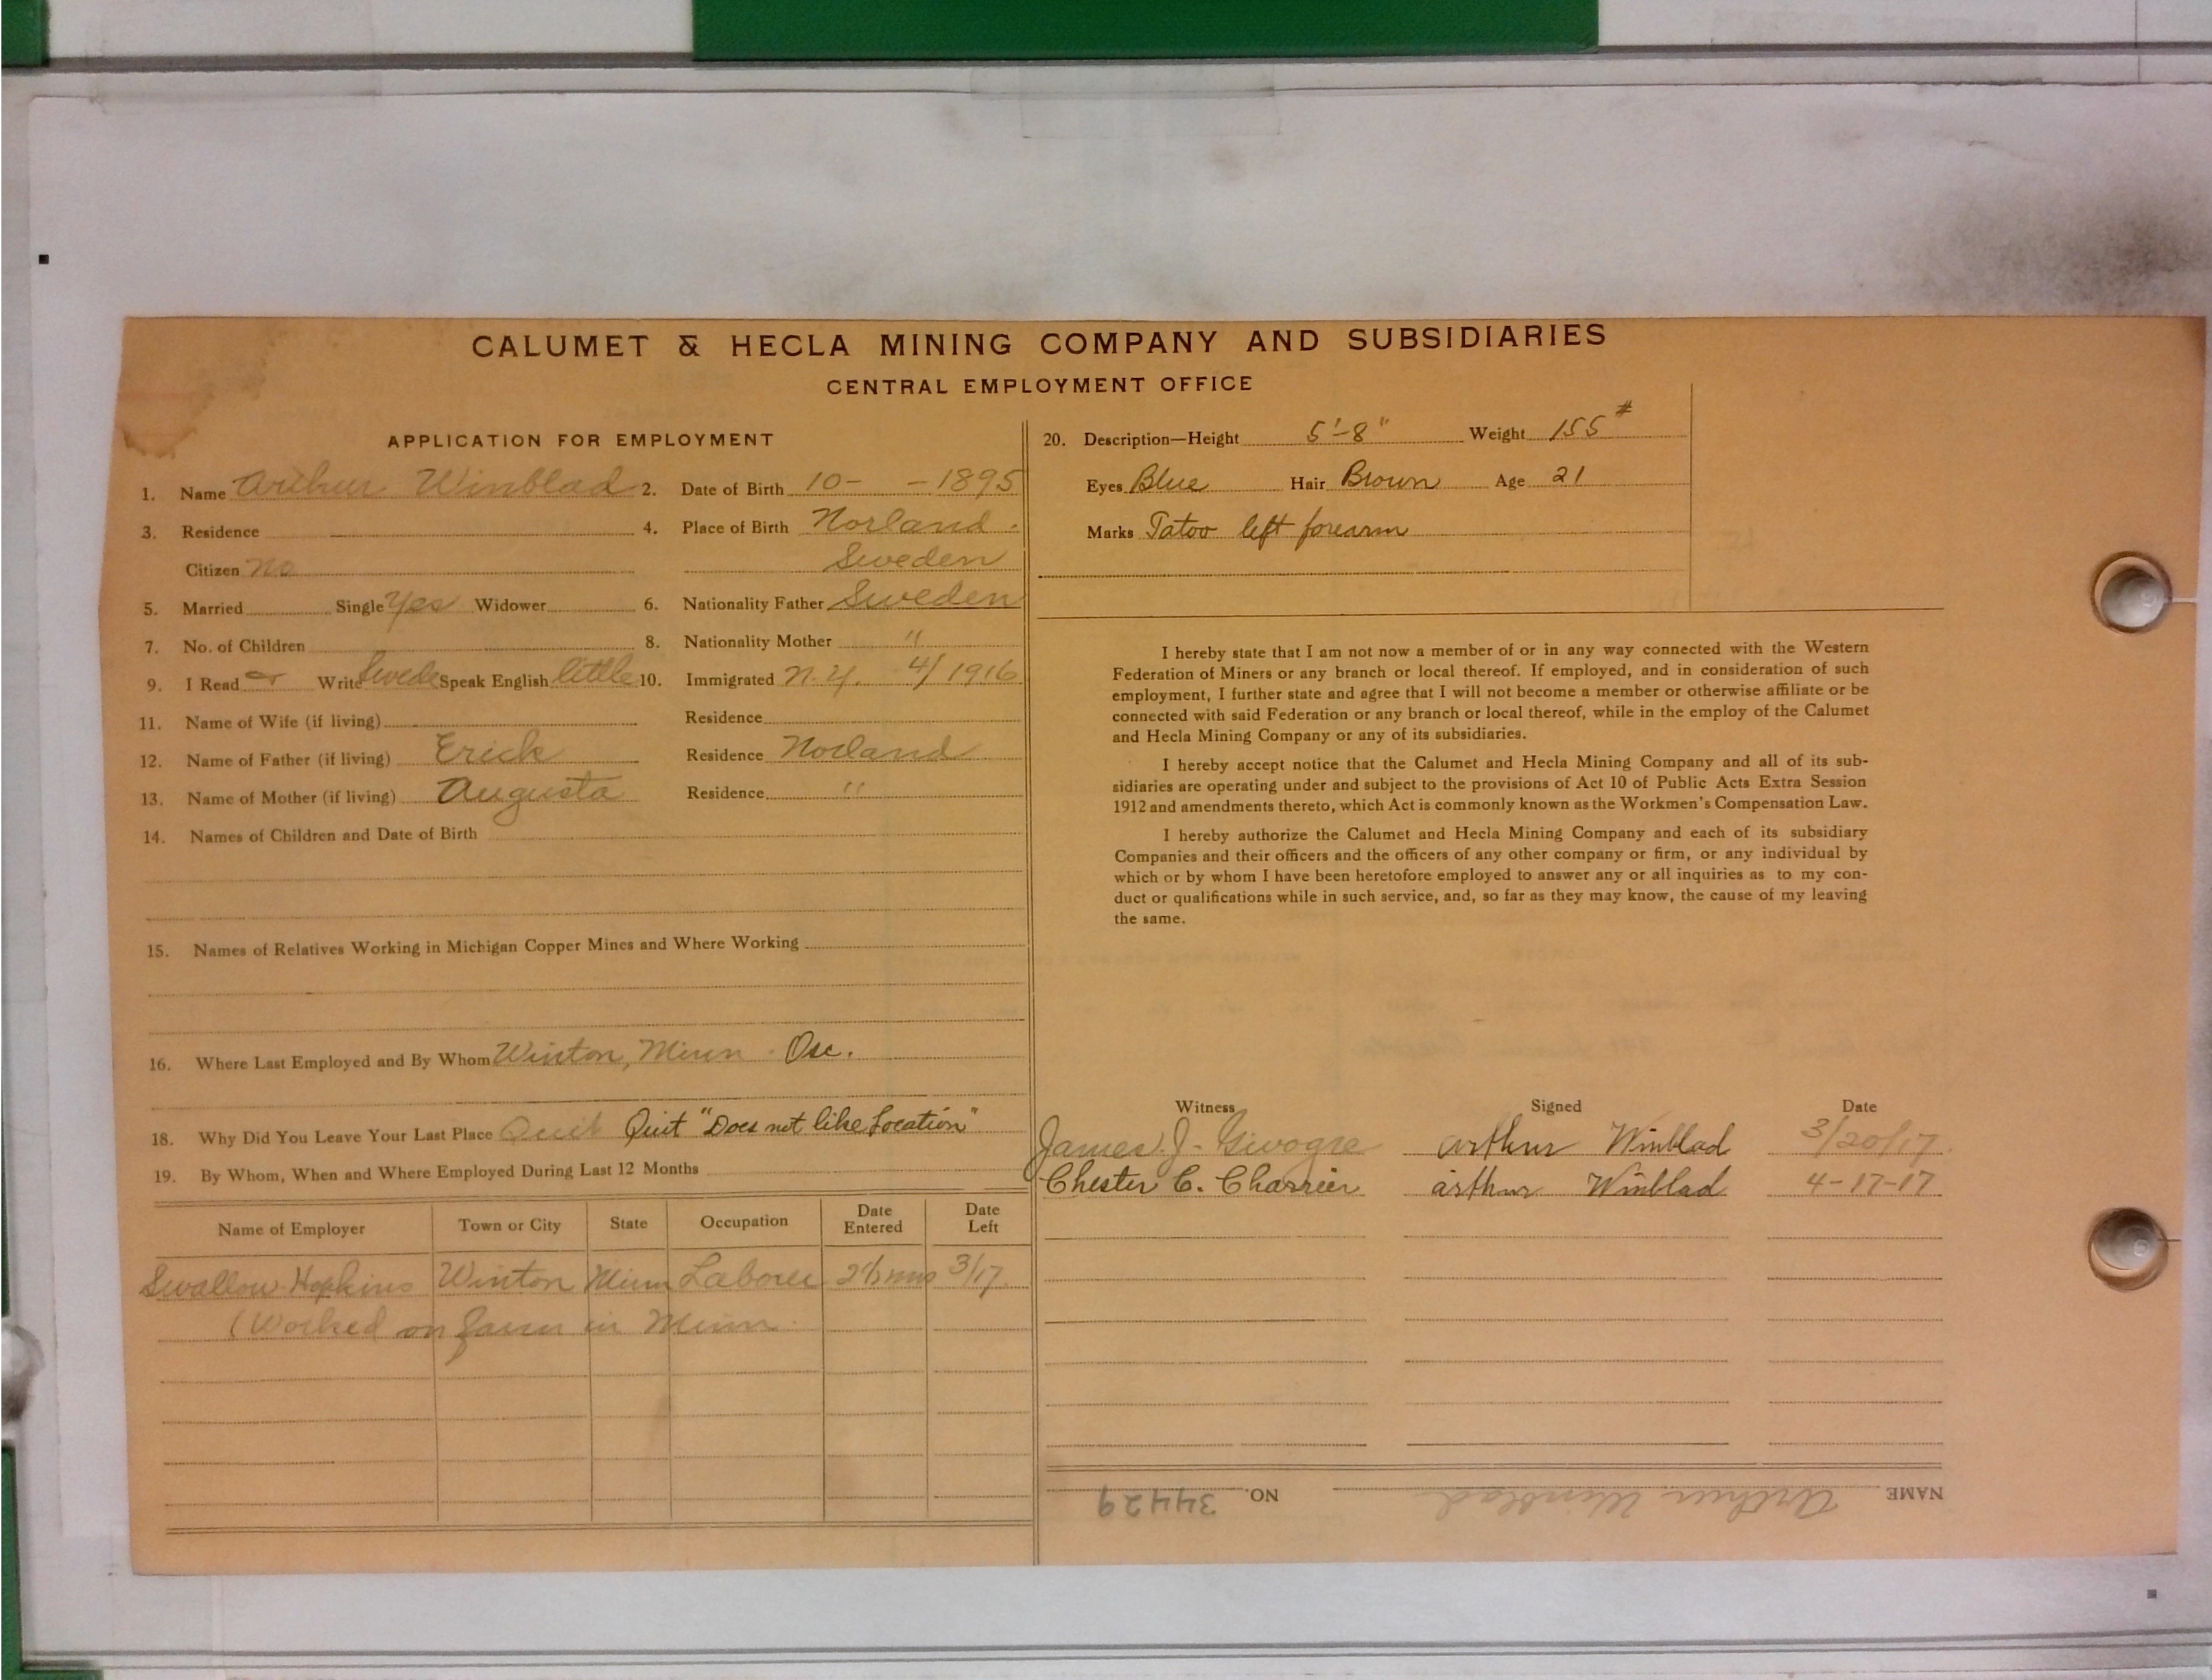 CALUMET & HECLA MINING COMPANY AND SUBSIDIARIES
CENTRAL EMPLOYMENT OFFICE
APPLICATION FOR EMPLOYMENT
1. Name Arthur Winblad 2. Date of Birth 10- -1895
3. Residence 4. Place of Birth Norland.
Citizen No Sweden
5. Married Single Yes Widower 6. Nationality Father Sweden
7. No. of Children 8. Nationality Mother "
9. I Read & Write Swede Speak English little 10. Immigrated N.Y. 4/1916
11. Name of Wife (if living) Residence
12. Name of Father (if living) Erick Residence Norland
13. Name of Mother (if living) Augusta Residence "
14. Names of Children and Date of Birth
15. Names of Relatives Working in Michigan Copper Mines and Where Working
16. Where Last Employed and By Whom Winton, Minn. Osc.
18. Why Did You Leave Your Last Place Quit Quit "Does not like Location"
19. By Whom, When and Where Employed During Last 12 Months
Name of Employer Town or City State Occupation Date Entered Date Left
Swallow Hopkins Winton Minn Laborer mos 3/17
(Worked on farm in Minn.
20. Description—Height 5'-8" Weight 155#
Eyes Blue Hair Brown Age 21
Marks Tatoo left forearm
I hereby state that I am not now a member of or in any way connected with the Western
Federation of Miners or any branch or local thereof. If employed, and in consideration of such
employment, I further state and agree that I will not become a member or otherwise affiliate or be
connected with said Federation or any branch or local thereof, while in the employ of the Calumet
and Hecla Mining Company or any of its subsidiaries.
I hereby accept notice that the Calumet and Hecla Mining Company and all of its sub-
sidiaries are operating under and subject to the provisions of Act 10 of Public Acts Extra Session
1912 and amendments thereto, which Act is commonly known as the Workmen's Compensation Law.
I hereby authorize the Calumet and Hecla Mining Company and each of its subsidiary
Companies and their officers and the officers of any other company or firm, or any individual by
which or by whom I have been heretofore employed to answer any or all inquiries as to my con-
duct or qualifications while in such service, and, so far as they may know, the cause of my leaving
the same.
Witness Signed Date
James J. Givogre Arthur Winblad 3/20/17.
Chester C. Charrier Arthur Winblad 4-17-17
NAME Arthur Winblad NO. 34429